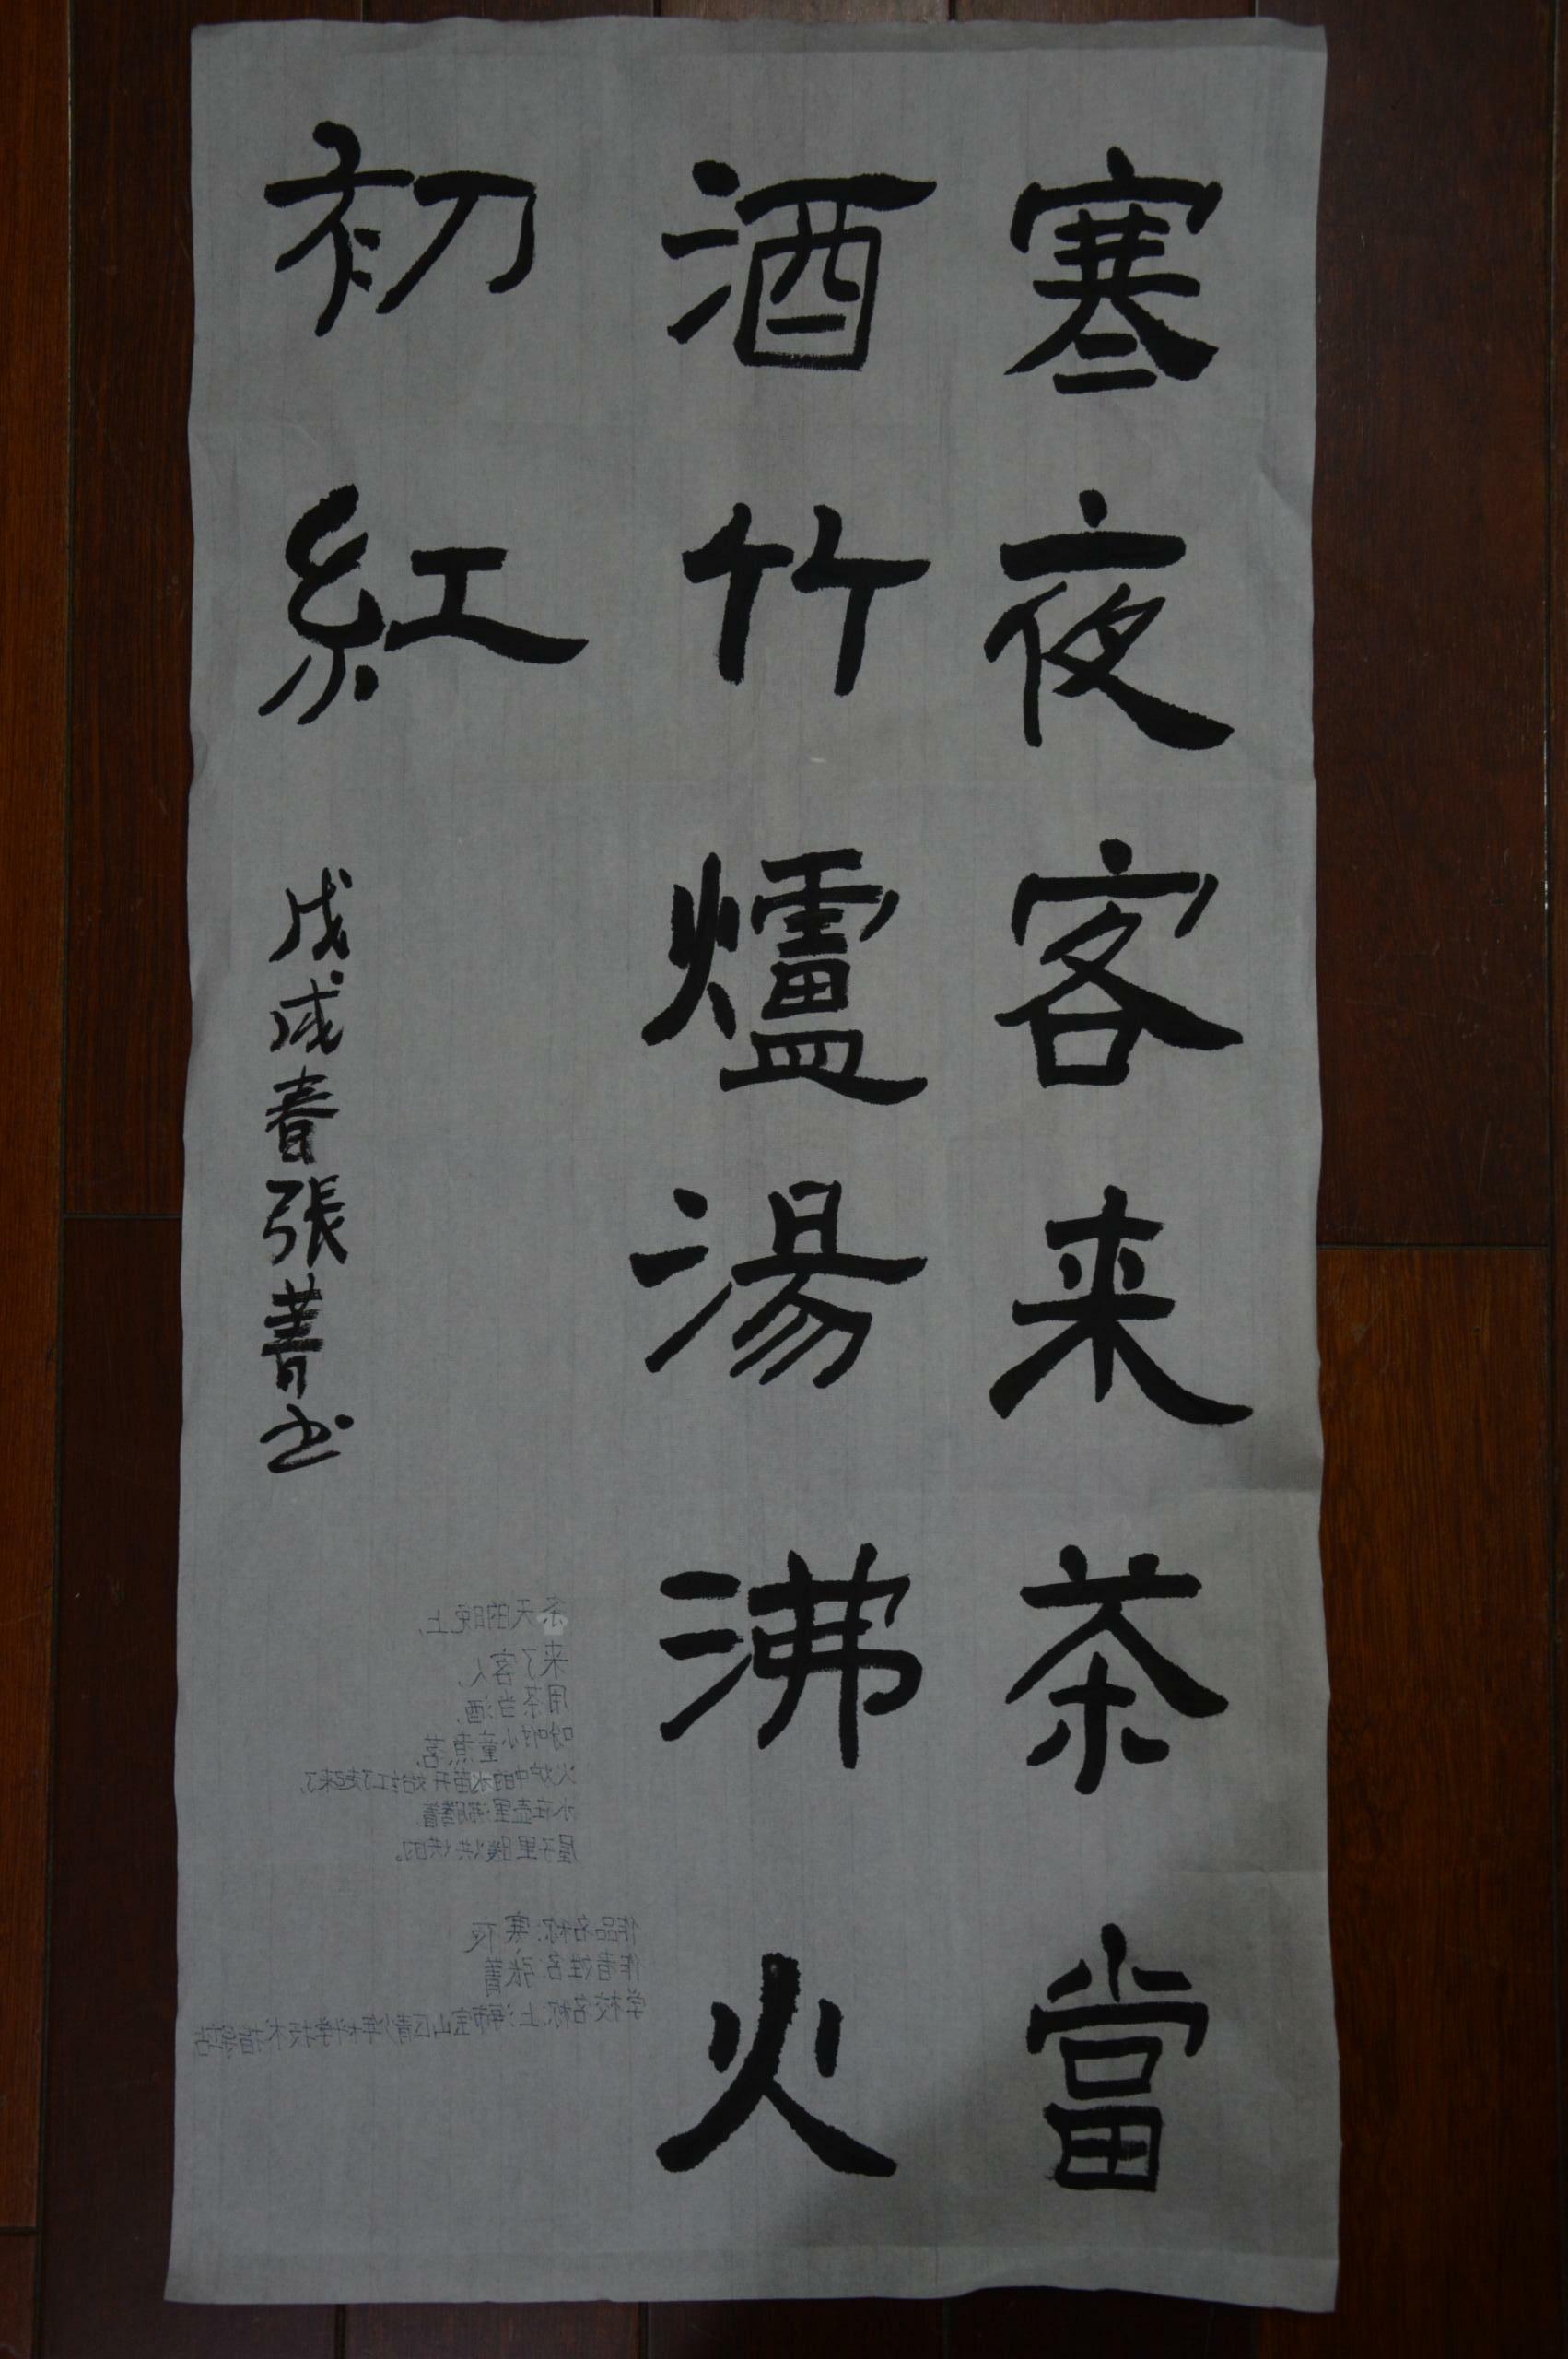 寒夜客来茶當
酒竹爐湯沸火
初紅
戊戌春張菁书
冬天的晚上,
来了客人,
用茶当酒,
吩咐小童煮茗,
火炉中的火苗开始红了起来了,
水在壶里沸腾着
屋子里暖烘烘的。
作品名称:寒夜
作者姓名:张菁
学校名称:上海市宝山区青少年科学技术指导站